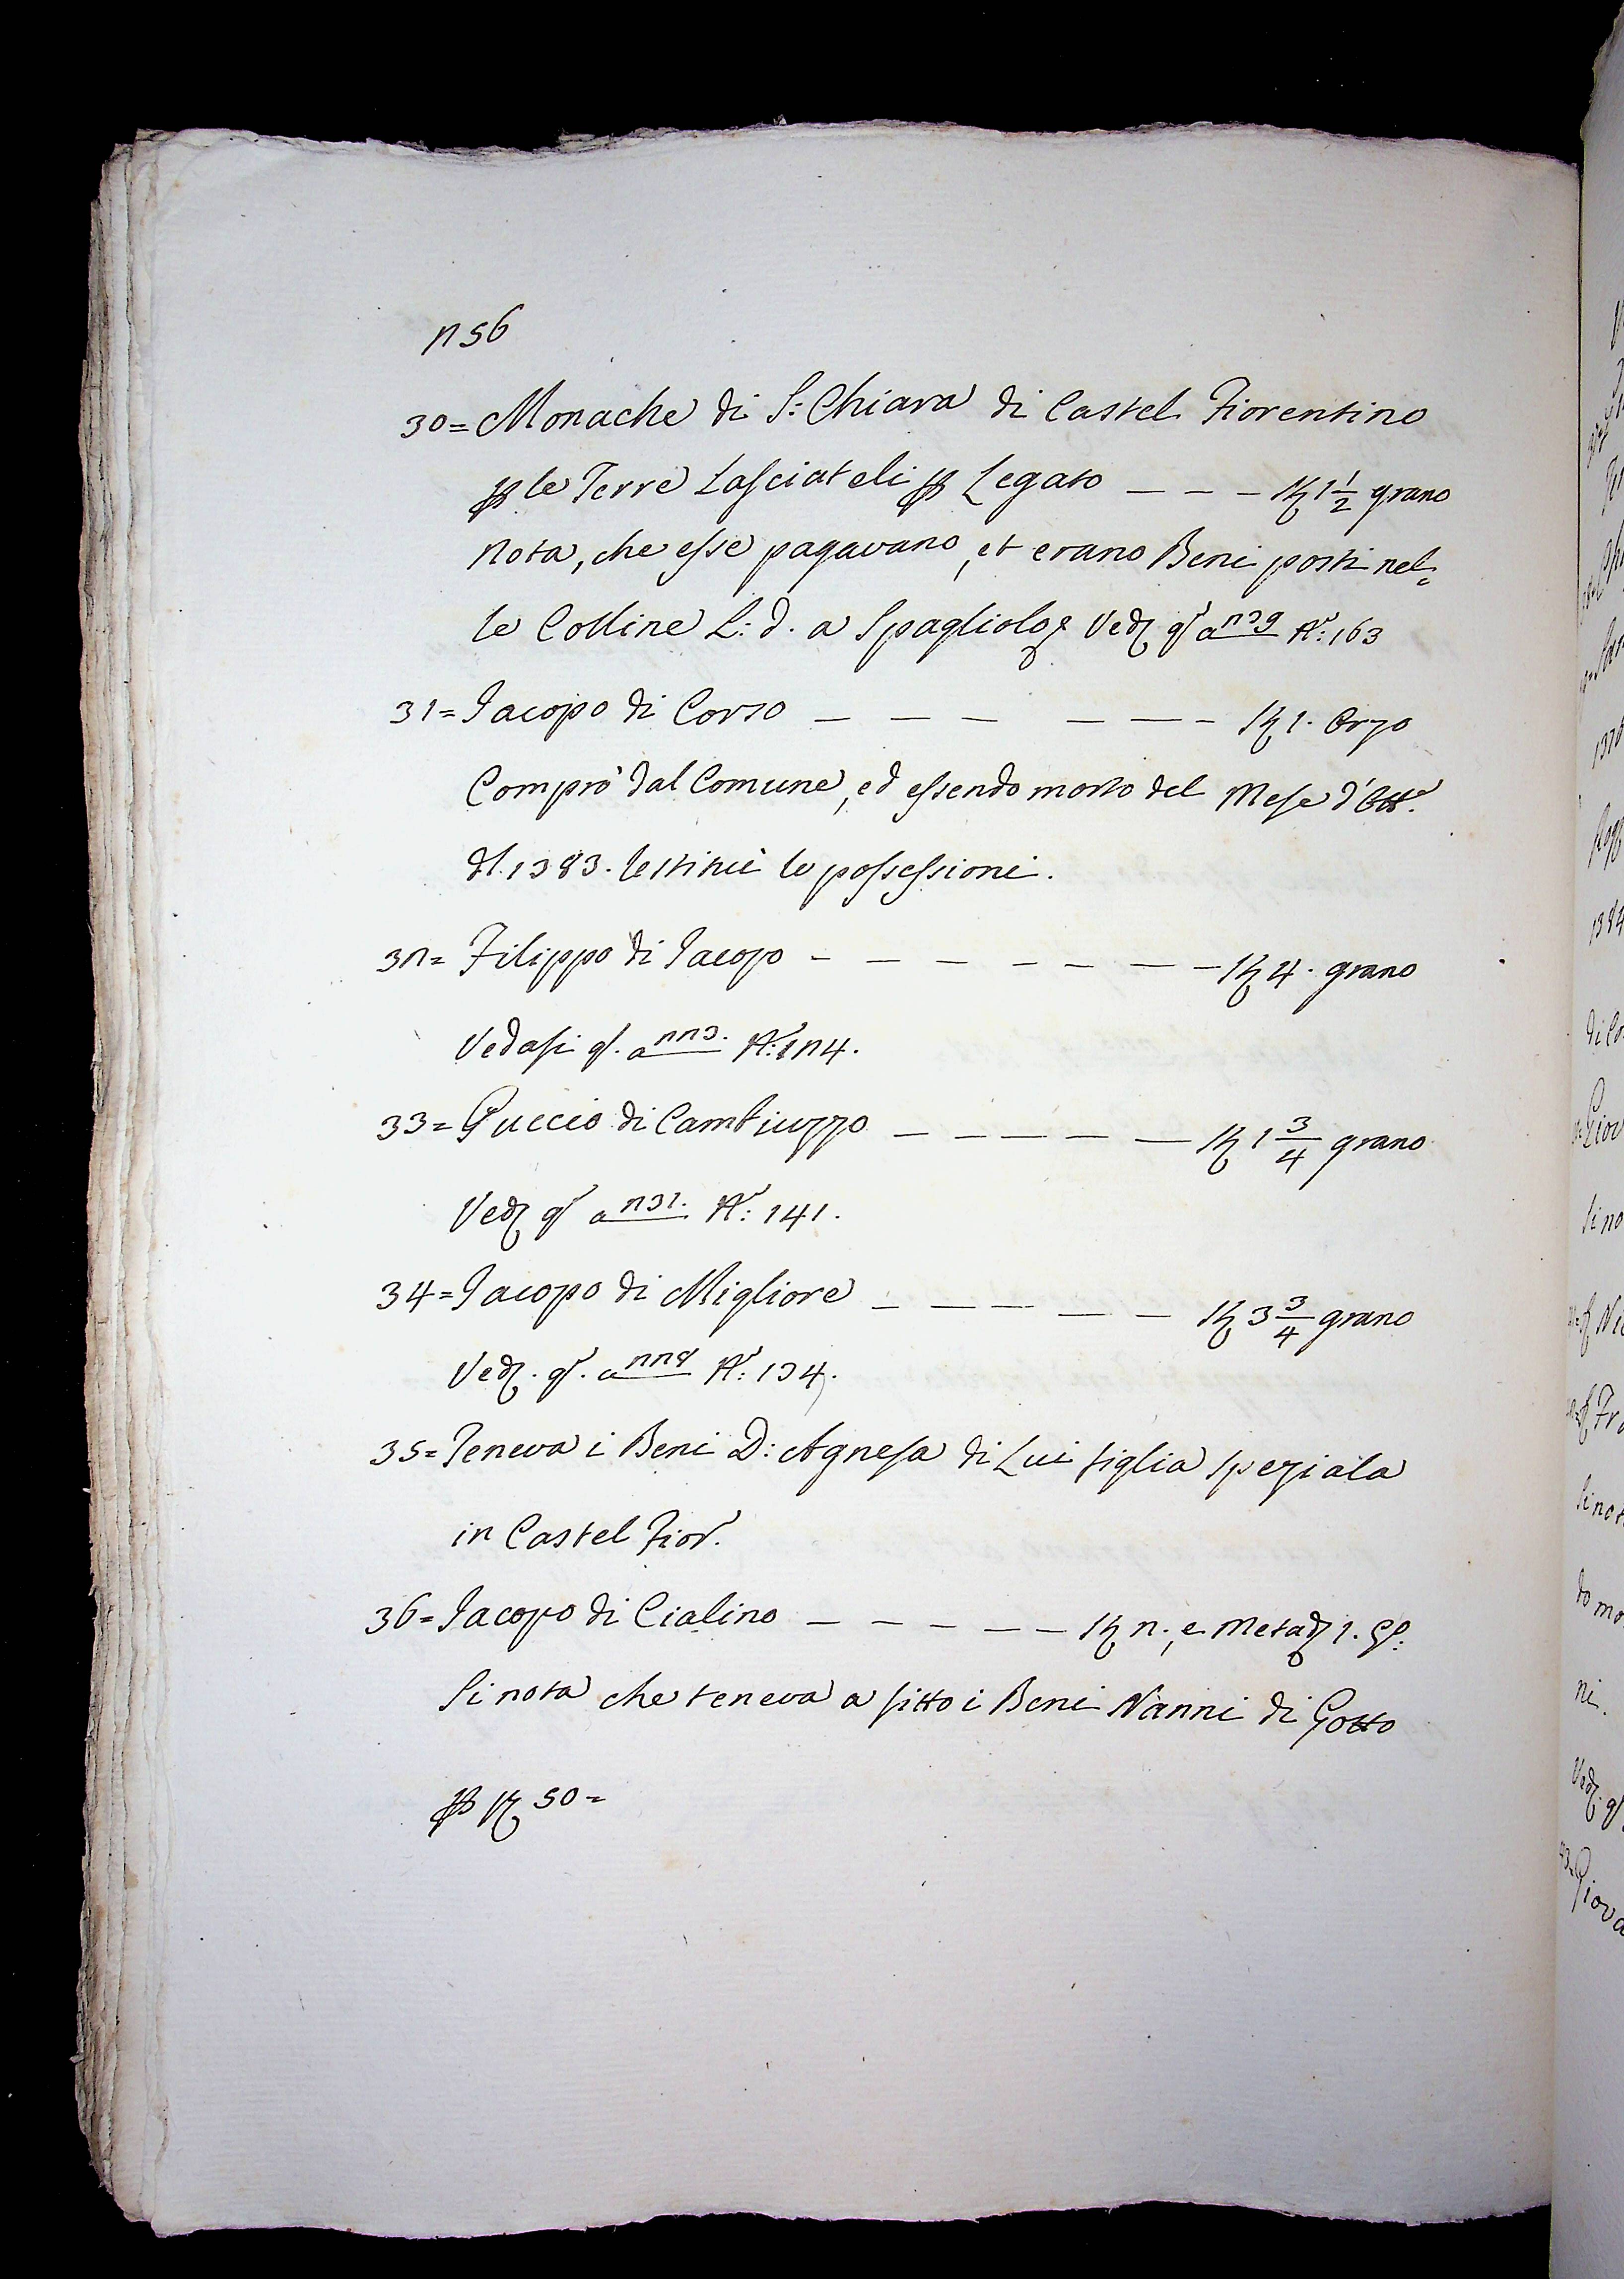 256
30= Monache di S: Chiara di Castel Fiorentino
p le Terre Lasciateli p Legato — — — St 1 1/2 grano
Nota, che esse pagavano, et erano Beni posti nel=
le Colline L: d. a Spagliola Ved q a 239 N: 163
31= Jacopo di Corso — — — — — — St 1. Orzo
Comprò dal Comune, ed essendo morto del Mese d'Ott.
dl 1383. restituì le possessioni.
32= Filippo di Jacopo — — — — — — — St 4. grano
Vedasi q. a 223. N: 124.
33= Guccio di Cambiuzzo — — — — — St 1 3/4 grano
Ved q a 231. N: 141.
34= Jacopo di Migliore — — — — — St 3 3/4 grano
Ved. q. a 228 N: 134.
35= Teneva i Beni D: Agnesa di Lui figlia Speziala
in Castel Fior.
36= Jacopo di Cialino — — — — — St 2., e Metad 1. G:
Si nota che teneva a fitto i Beni Nanni di Gotto
p 50=